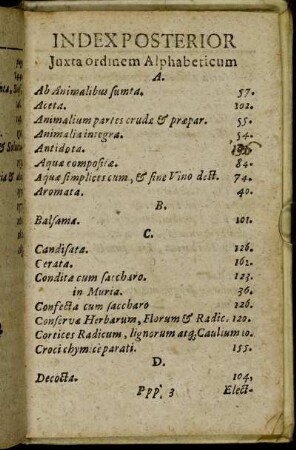 INDEX POSTERIOR
Juxta ordinem Alphabeticum
A.
Ab Animalibus sumta. 57.
Aceta. 102.
Animalium partes crudæ & præpar. 55.
Animalia integra. 54.
Antidota.
Aquæ compositæ. 84.
Aquæ simplices cum, & sine Vino dest. 74.
Aromata. 40.
B.
Balsama. 101.
C.
Candisata. 126.
Cerata. 162.
Condita cum saccharo. 123.
in Muria. 36.
Confecta cum saccharo 126.
Conservæ Herbarum, Florum & Radic. 120.
Cortices Radicum, lignorum atq; Caulium 10.
Croci chymicè parati. 155.
D.
Decocta. 104,
Ppp 3 Elect-